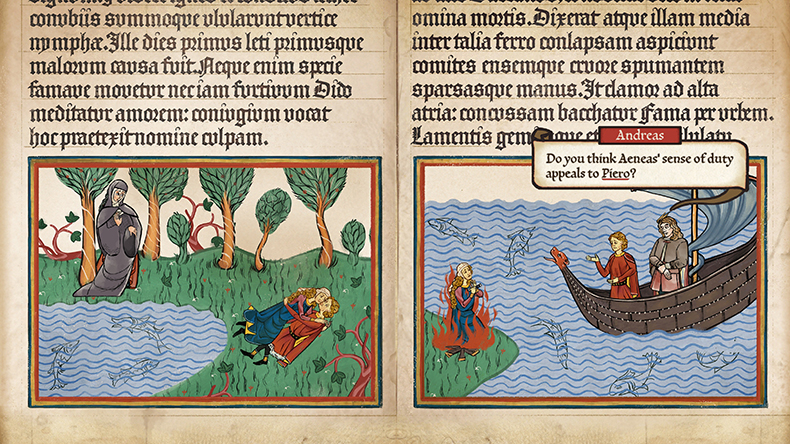 conubiis summoque ulularunt vertice
nymphæ. Ille dies primus leti primusque
malorum causa fuit. Neque enim specie
famave movetur nec iam furtivum Dido
meditatur amorem: coniugium vocat
hoc praetexit nomine culpam.
omina mortis. Dixerat atque illam media
inter talia ferro conlapsam aspiciunt
comites ensemque cruore spumantem
sparsasque manus. It clamor ad alta
atria: concussam bacchatur Fama per urbem.
Lamentis
Andreas
Do you think Aeneas' sense of duty
appeals to Piero?